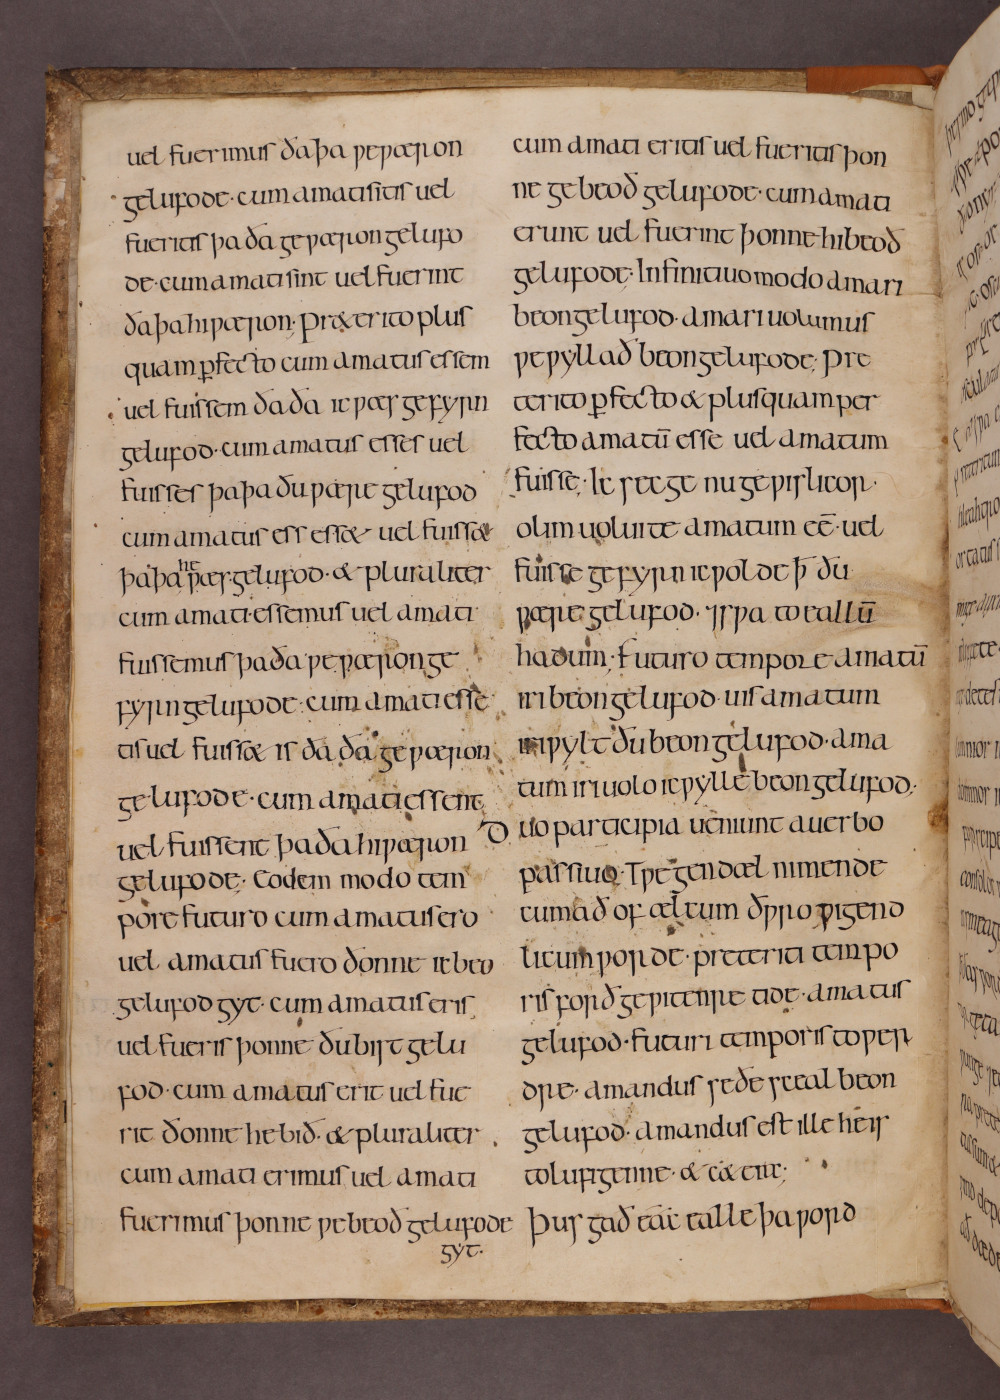 uel fuerimus ðaþa ƿeƿæron
gelufode· cum amati sitis uel
fueritis þa ða ge ƿæron gelufo
de· cum amati sint uel fuerint
ðaþa hi ƿæron; Preterito plus
quam ꝑfecto cum amatus essem
uel fuissem ða ða ic ƿæs gefyrn
gelufod· cum amatus esses uel
fuisses þaþa ðu ƿære gelufod
cum amatus ess esset uel fuisset
þaþa he ƿæs gelufod· & pluraliter
cum amati· essemus uel amati
fuissemus þa ða ƿe ƿæron ge
fyrn gelufode· cum amati esse
tis uel fuissetis ða ða ge ƿæron
gelufode· cum amati essent
uel fuissent þa ða hi ƿæron
gelufode; Eodem modo tem
pore futuro cum amatus ero
uel amatus fuero ðonne ic beo
gelufod gyt· cum amatus eris
uel fueris þonne ðu bist gelu
fod· cum amatus erit uel fue
rit ðonne he bið· & pluraliter
cum amati erimus uel amati
fuerimus þonne ƿe beoð gelufode
gyt·
cum amati eritis uel fueritis þon
ne ge beoð gelufode· cum amati
erunt uel fuerint þonne hi beoð
gelufode· Infinitiuo modo amari
beon gelufod· amari uolumus
ƿe ƿyllað beon gelufode; Pre
terito ꝑfecto & plusquam per
fecto amatū esse uel amatum
fuisse· Ic secge nu gewislicor·
olim uoluite amatum eē· uel
fuisse gefyrn ic ƿolde ꝥ ðu
ƿære gelufod· ⁊ sƿa to eallū
hadum; futuro tempore amatū
iri beon gelufod· uis amatum
iri ƿylt ðu beon gelufod· ama
tum iri uolo ic ƿylle beon gelufod;
Duo participia ueniunt a uerbo
passiuo· Tƿegen dæl nimende
cumað of ðroƿigend
licum ƿorde· preteriti tempo
ris forðgeƿitenre tide· amatus
gelufod· futuri temporis toƿer
dre· amandus se ðe sceal beon
gelufod· amandus est ille he is
to lufigenne· & cetere;
Þus gað eac ealle þa ƿord